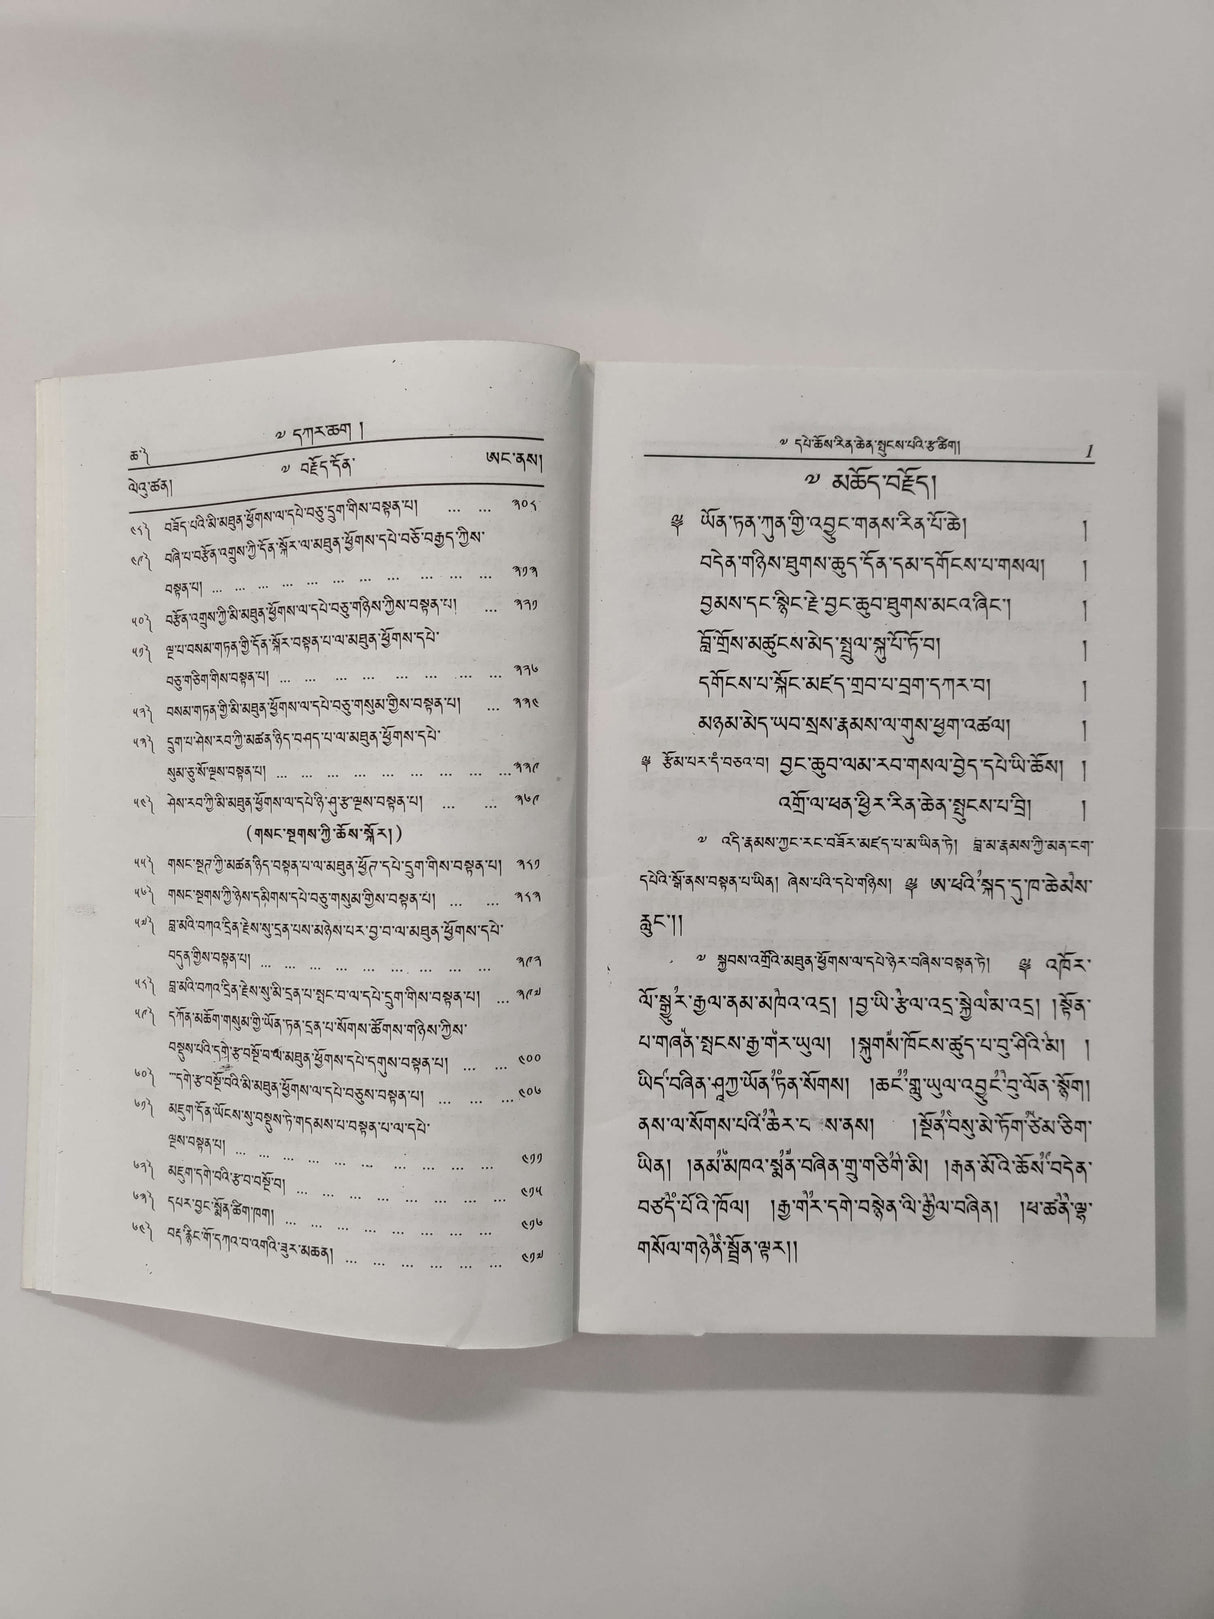 ༧ དཀར་ཆག །
ཆ༽
ལེའུ་ཚན། ༧ བརྗོད་དོན་ ཨང་ནས།
༤༨༽ བཟོད་པའི་མི་མཐུན་ཕྱོགས་ལ་དཔེ་བཅུ་དྲུག་གིས་བསྟན་པ། ... ... ༣༠༨
༤༩༽ བཞི་པ་བརྩོན་འགྲུས་ཀྱི་དོན་སྐོར་ལ་མཐུན་ཕྱོགས་དཔེ་བཅོ་བརྒྱད་ཀྱིས་
བསྟན་པ། ... ... ... ... ... ... ... ... ... ... ༣༡༣
༥༠༽ བརྩོན་འགྲུས་ཀྱི་མི་མཐུན་ཕྱོགས་ལ་དཔེ་བཅུ་གཉིས་ཀྱིས་བསྟན་པ། ... ༣༢༡
༥༡༽ ལྔ་པ་བསམ་གཏན་གྱི་དོན་སྐོར་བསྟན་པ་ལ་མཐུན་ཕྱོགས་དཔེ་
བཅུ་གཅིག་གིས་བསྟན་པ། ... ... ... ... ... ... ... ... ༣༢༦
༥༢༽ བསམ་གཏན་གྱི་མི་མཐུན་ཕྱོགས་ལ་དཔེ་བཅུ་གསུམ་གྱིས་བསྟན་པ། ... ༣༣༤
༥༣༽ དྲུག་པ་ཤེས་རབ་ཀྱི་མཚན་ཉིད་བཤད་པ་ལ་མཐུན་ཕྱོགས་དཔེ་
སུམ་ཅུ་སོ་ལྔས་བསྟན་པ། ... ... ... ... ... ... ... ... ... ༣༣༩
༥༤༽ ཤེས་རབ་ཀྱི་མི་མཐུན་ཕྱོགས་ལ་དཔེ་ཉི་ཤུ་རྩ་ལྔས་བསྟན་པ། ... ... ༣༦༩
(གསང་སྔགས་ཀྱི་ཆོས་སྐོར།)
༥༥༽ གསང་སྔགས་ཀྱི་མཚན་ཉིད་བསྟན་པ་ལ་མཐུན་ཕྱོགས་དཔེ་དྲུག་གིས་བསྟན་པ། ༣༨༡
༥༦༽ གསང་སྔགས་ཀྱི་ཉེས་དམིགས་དཔེ་བཅུ་གསུམ་གྱིས་བསྟན་པ། ... ... ༣༨༣
༥༧༽ བླ་མའི་བཀའ་དྲིན་རྗེས་སུ་དྲན་པས་མཉེས་པར་བྱ་བ་ལ་མཐུན་ཕྱོགས་དཔེ་
བདུན་གྱིས་བསྟན་པ། ... ... ... ... ... ... ... ... ... ... ༣༩༢
༥༨༽ བླ་མའི་བཀའ་དྲིན་རྗེས་སུ་མི་དྲན་པ་སྤང་བ་ལ་དཔེ་དྲུག་གིས་བསྟན་པ། ... ༣༩༧
༥༩༽ དཀོན་མཆོག་གསུམ་གྱི་ཡོན་ཏན་དྲན་པ་སོགས་ཚོགས་གཉིས་ཀྱིས་
བསྡུས་པའི་དགེ་རྩ་བསྔོ་བ་ལ་མཐུན་ཕྱོགས་དཔེ་དགུས་བསྟན་པ། ... ... ༤༠༠
༦༠༽ དགེ་རྩ་བསྔོ་བའི་མི་མཐུན་ཕྱོགས་ལ་དཔེ་བཅུས་བསྟན་པ། ... ... ... ༤༠༦
༦༡༽ མཇུག་དོན་ཡོངས་སུ་བསྡུས་ཏེ་གདམས་པ་བསྟན་པ་ལ་དཔེ་
ལྔས་བསྟན་པ། ... ... ... ... ... ... ... ... ... ... ... ༤༡༡
༦༢༽ མཇུག་དགེ་བའི་རྩ་བ་བསྔོ་བ། ... ... ... ... ... ... ... ... ... ༤༡༥
༦༣༽ དཔར་བྱང་སྨོན་ཚིག་ཁག། ... ... ... ... ... ... ... ... ༤༡༦
༦༤༽ བརྡ་རྙིང་གོ་དཀའ་བ་འགའི་ཟུར་མཆན། ... ... ... ... ... ... ༤༡༧
༧ དཔེ་ཆོས་རིན་ཆེན་སྤུངས་པའི་རྩ་ཚིག། 1
༧ མཆོད་བརྗོད།
༄ ཡོན་ཏན་ཀུན་གྱི་འབྱུང་གནས་རིན་པོ་ཆེ། །
བདེན་གཉིས་ཐུགས་ཆུད་དོན་དམ་དགོངས་པ་གསལ། །
བྱམས་དང་སྙིང་རྗེ་བྱང་ཆུབ་ཐུགས་མངའ་ཞིང་། །
བློ་གྲོས་མཚུངས་མེད་སྤྲུལ་སྐུ་པོ་ཏོ་བ། །
དགོངས་པ་སྐོང་མཛད་གྲབ་པ་བྲག་དཀར་བ། །
མཉམ་མེད་ཡབ་སྲས་རྣམས་ལ་གུས་ཕྱག་འཚལ། །
༄ རྩོམ་པར་དཾ་བཅའ་བ། བྱང་ཆུབ་ལམ་རབ་གསལ་བྱེད་དཔེ་ཡི་ཆོས། །
འགྲོ་ལ་ཕན་ཕྱིར་རིན་ཆེན་སྤུངས་པ་བྲི། །
༧ འདི་རྣམས་ཀྱང་རང་བཟོར་མཛད་པ་མ་ཡིན་ཏེ། བླ་མ་རྣམས་ཀྱི་མན་ངག་
དཔེའི་སྒོ་ནས་བསྟན་པ་ཡིན། ཞེས་པའི་དཔེ་གཉིས། ༄ ཨ་ཕའི་སྐད་དུ་ཁ་ཆེམས་
རླུང་།།
༧ སྐྱབས་འགྲོའི་མཐུན་ཕྱོགས་ལ་དཔེ་ཉེར་བཞིས་བསྟན་ཏེ། ༄ འཁོར་
ལོ་སྒྱུར་རྒྱལ་ནམ་མཁའི་འདྲ། །བྱ་ཡི་རྩེལ་འདྲ་སྐྱེལ་མ་འདྲ། །སྟོན་
པ་གཞན་སྤངས་རྒྱ་གར་ཡུལ། །སྐུགས་ཁོངས་ཚུད་པ་བུ་ཤིའི་མ། །
ཡིད་བཞིན་ཤཱཀྱ་ཡོན་ཏན་སོགས། །ཆང་གླུ་ཡུལ་འབྱུང་བུ་ལོན་སྙོག།
ནས་ལ་སོགས་པའི་ཆེར་པ ས་ནས། །སྔོན་བསུ་མེ་ཏོག་ཙམ་ཅིག་
ཡིན། །ནམ་མཁའ་སྨན་བཞིན་གྲུ་གཅིག་མི། །རྒན་མོའི་ཆོས་བདེན་
བཙད་པོའི་ཁོལ། །རྒྱ་གར་དགེ་བསྙེན་ལི་རྒྱལ་བཞིན། །ཕ་ཚན་ལྷ་
གསོལ་གཉེན་སྒྲོན་ལྟར།།